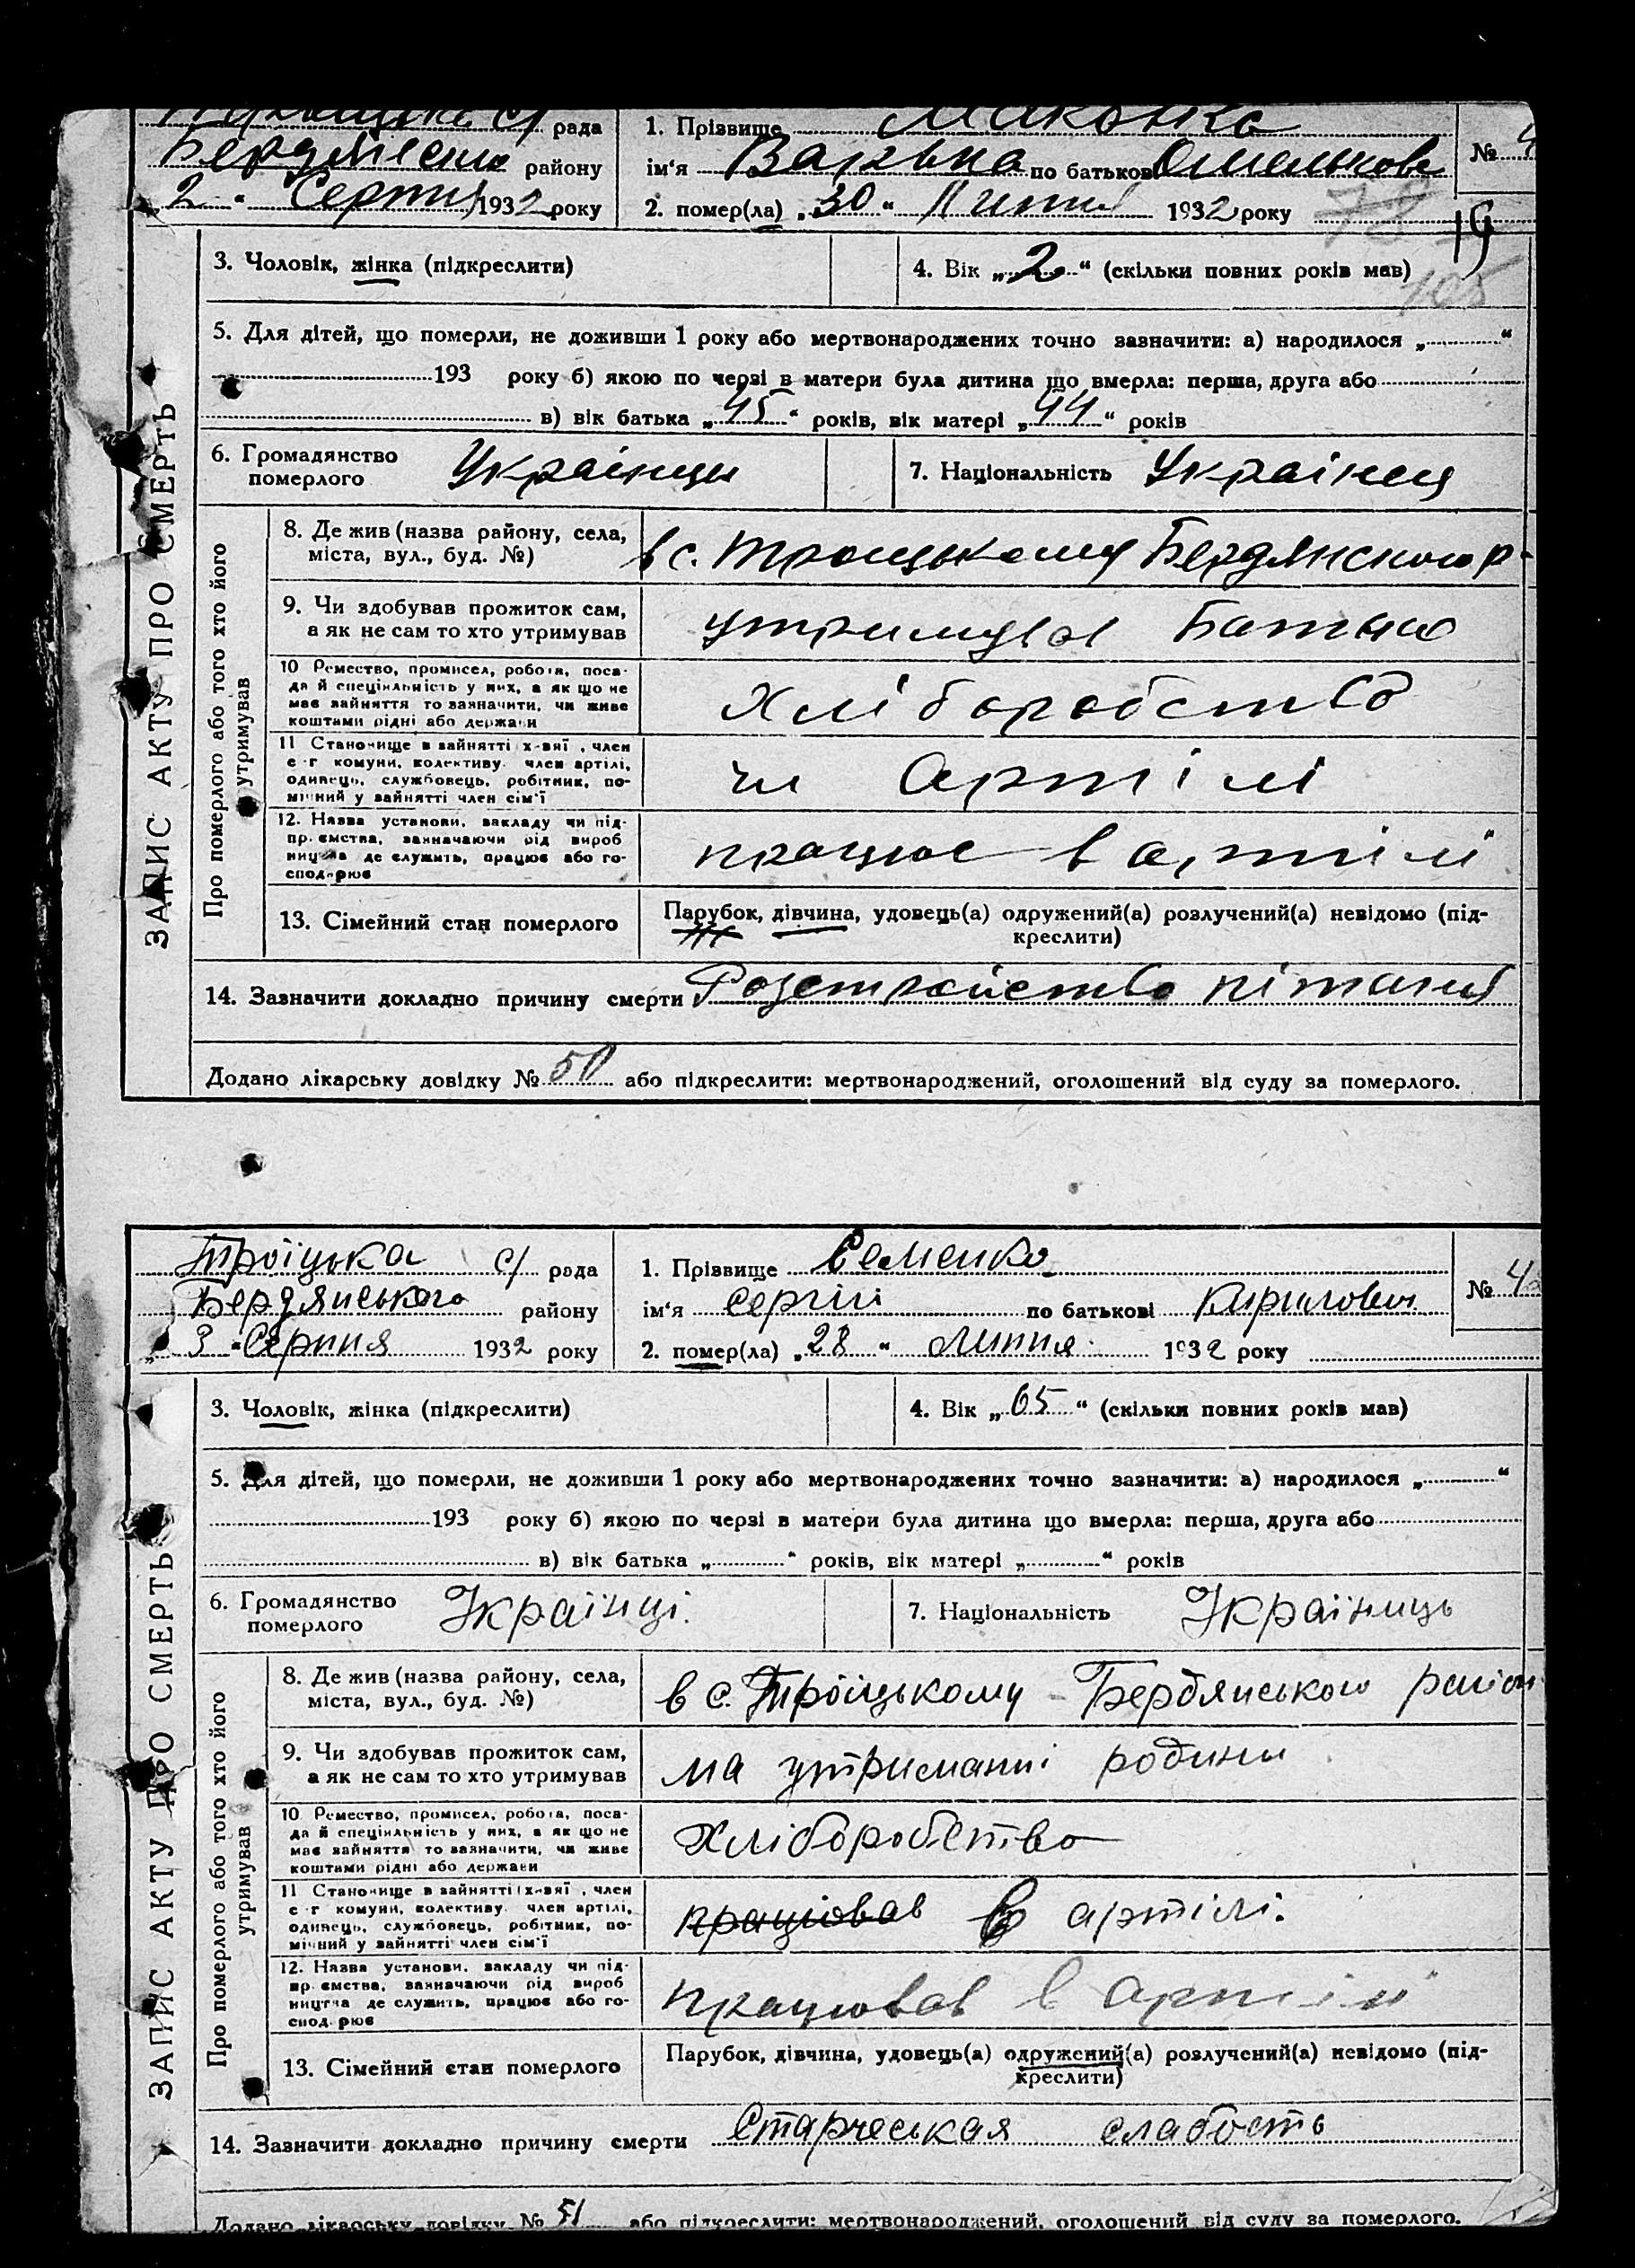 рада 1. Прізвище
району ім‘я Варька по батькові Омелькове №
2 “ Серпня 1932 року 2. помер(ла) „30“ Липня 1932 року 78 19
3. Чоловік, жінка (підкреслити) 4. Вік „2“ (скільки повних років мав) 105
5. Для дітей, що померли, не доживши 1 року або мертвонароджених точно зазначити: а) народилося „ “
193 року б) якою по черзі в матери була дитина що вмерла: перша, друга або
в) вік батька „45“ років, вік матері „44“ років
6. Громадянство померлого Украінци 7. Національність Украінец
ЗАПИС АКТУ ПРО СМЕРТЬ
Про померлого або того хто його утримував
8. Де жив (назва району, села,
міста, вул., буд. №) в с. Троицькому Бердянского р-
9. Чи здобував прожиток сам,
а як не сам то хто утримував утримував Батько
10 Ремество, промисел, робота, поса-
да й спеціяльність у них, а як що не
має зайняття то зазначити, чи живе
коштами рідні або держави Хліборобство
11 Становище в зайнятті , член
с-г комуни, колективу, член артілі,
одинець, службовець, робітник, по-
мічний у зайнятті член сім‘ї чл Артілі
12. Назва установи, закладу чи під-
пр ємства, зазначаючи рід вироб
ництва де служить, працює або го-
сподарює працює в артілі
13. Сімейний стан померлого Парубок, дівчина, удовець(а) одружений(а) розлучений(а) невідомо (під-
креслити)
14. Зазначити докладно причину смерти Розстройство пітания
Додано лікарську довідку № 50 або підкреслити: мертвонароджений, оголошений від суду за померлого.
Троїцька с/ рада 1. Прізвище Семенко
Бердянського району ім‘я Сергій по батькові Кирилович № 4
„ 3 “ Серпня 1932 року 2. помер(ла) „28“ Липня 1932 року
3. Чоловік, жінка (підкреслити) 4. Вік „65“ (скільки повних років мав)
5. Для дітей, що померли, не доживши 1 року або мертвонароджених точно зазначити: а) народилося „ “
193 року б) якою по черзі в матери була дитина що вмерла: перша, друга або
в) вік батька „ “ років, вік матері „ “ років
6. Громадянство померлого Украінці. 7. Національність Україниць
ЗАПИС АКТУ ПРО СМЕРТЬ
Про померлого або того хто його утримував
8. Де жив (назва району, села,
міста, вул., буд. №) в с. Троїцькому - Бердянського район
9. Чи здобував прожиток сам,
а як не сам то хто утримував на утриманні родини
10 Ремество, промисел, робота, поса-
да й спеціяльність у них, а як що не
має зайняття то зазначити, чи живе
коштами рідні або держави Хліборобство
11 Становище в зайнятті , член
с-г комуни, колективу, член артілі,
одинець, службовець, робітник, по-
мічний у зайнятті член сім‘ї працював в артілі.
12. Назва установи, закладу чи під-
пр ємства, зазначаючи рід вироб
ництва де служить, працює або го-
сподарює працював в артілі
13. Сімейний стан померлого Парубок, дівчина, удовець(а) одружений(а) розлучений(а) невідомо (під-
креслити)
14. Зазначити докладно причину смерти Старческая слабость
Додано лікарську довідку № 51 або підкреслити: мертвонароджений, оголошений від суду за померлого.